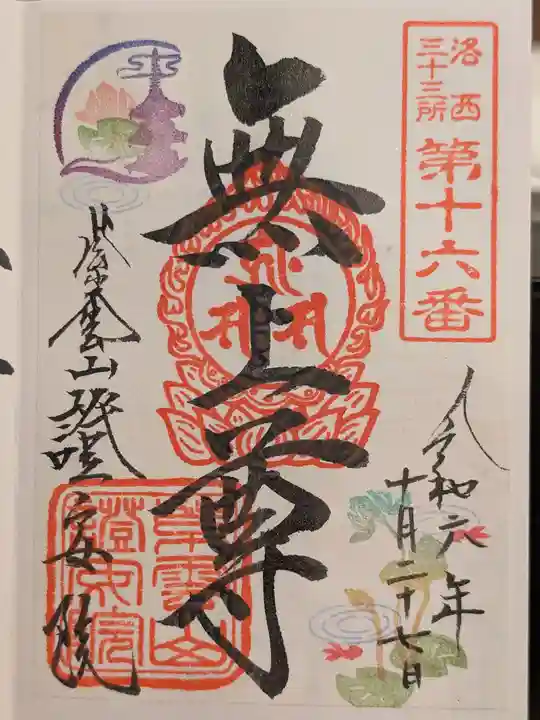 洛西
三十三所
第十六番
無上尊
令和六年
十月二十七日
山證安院